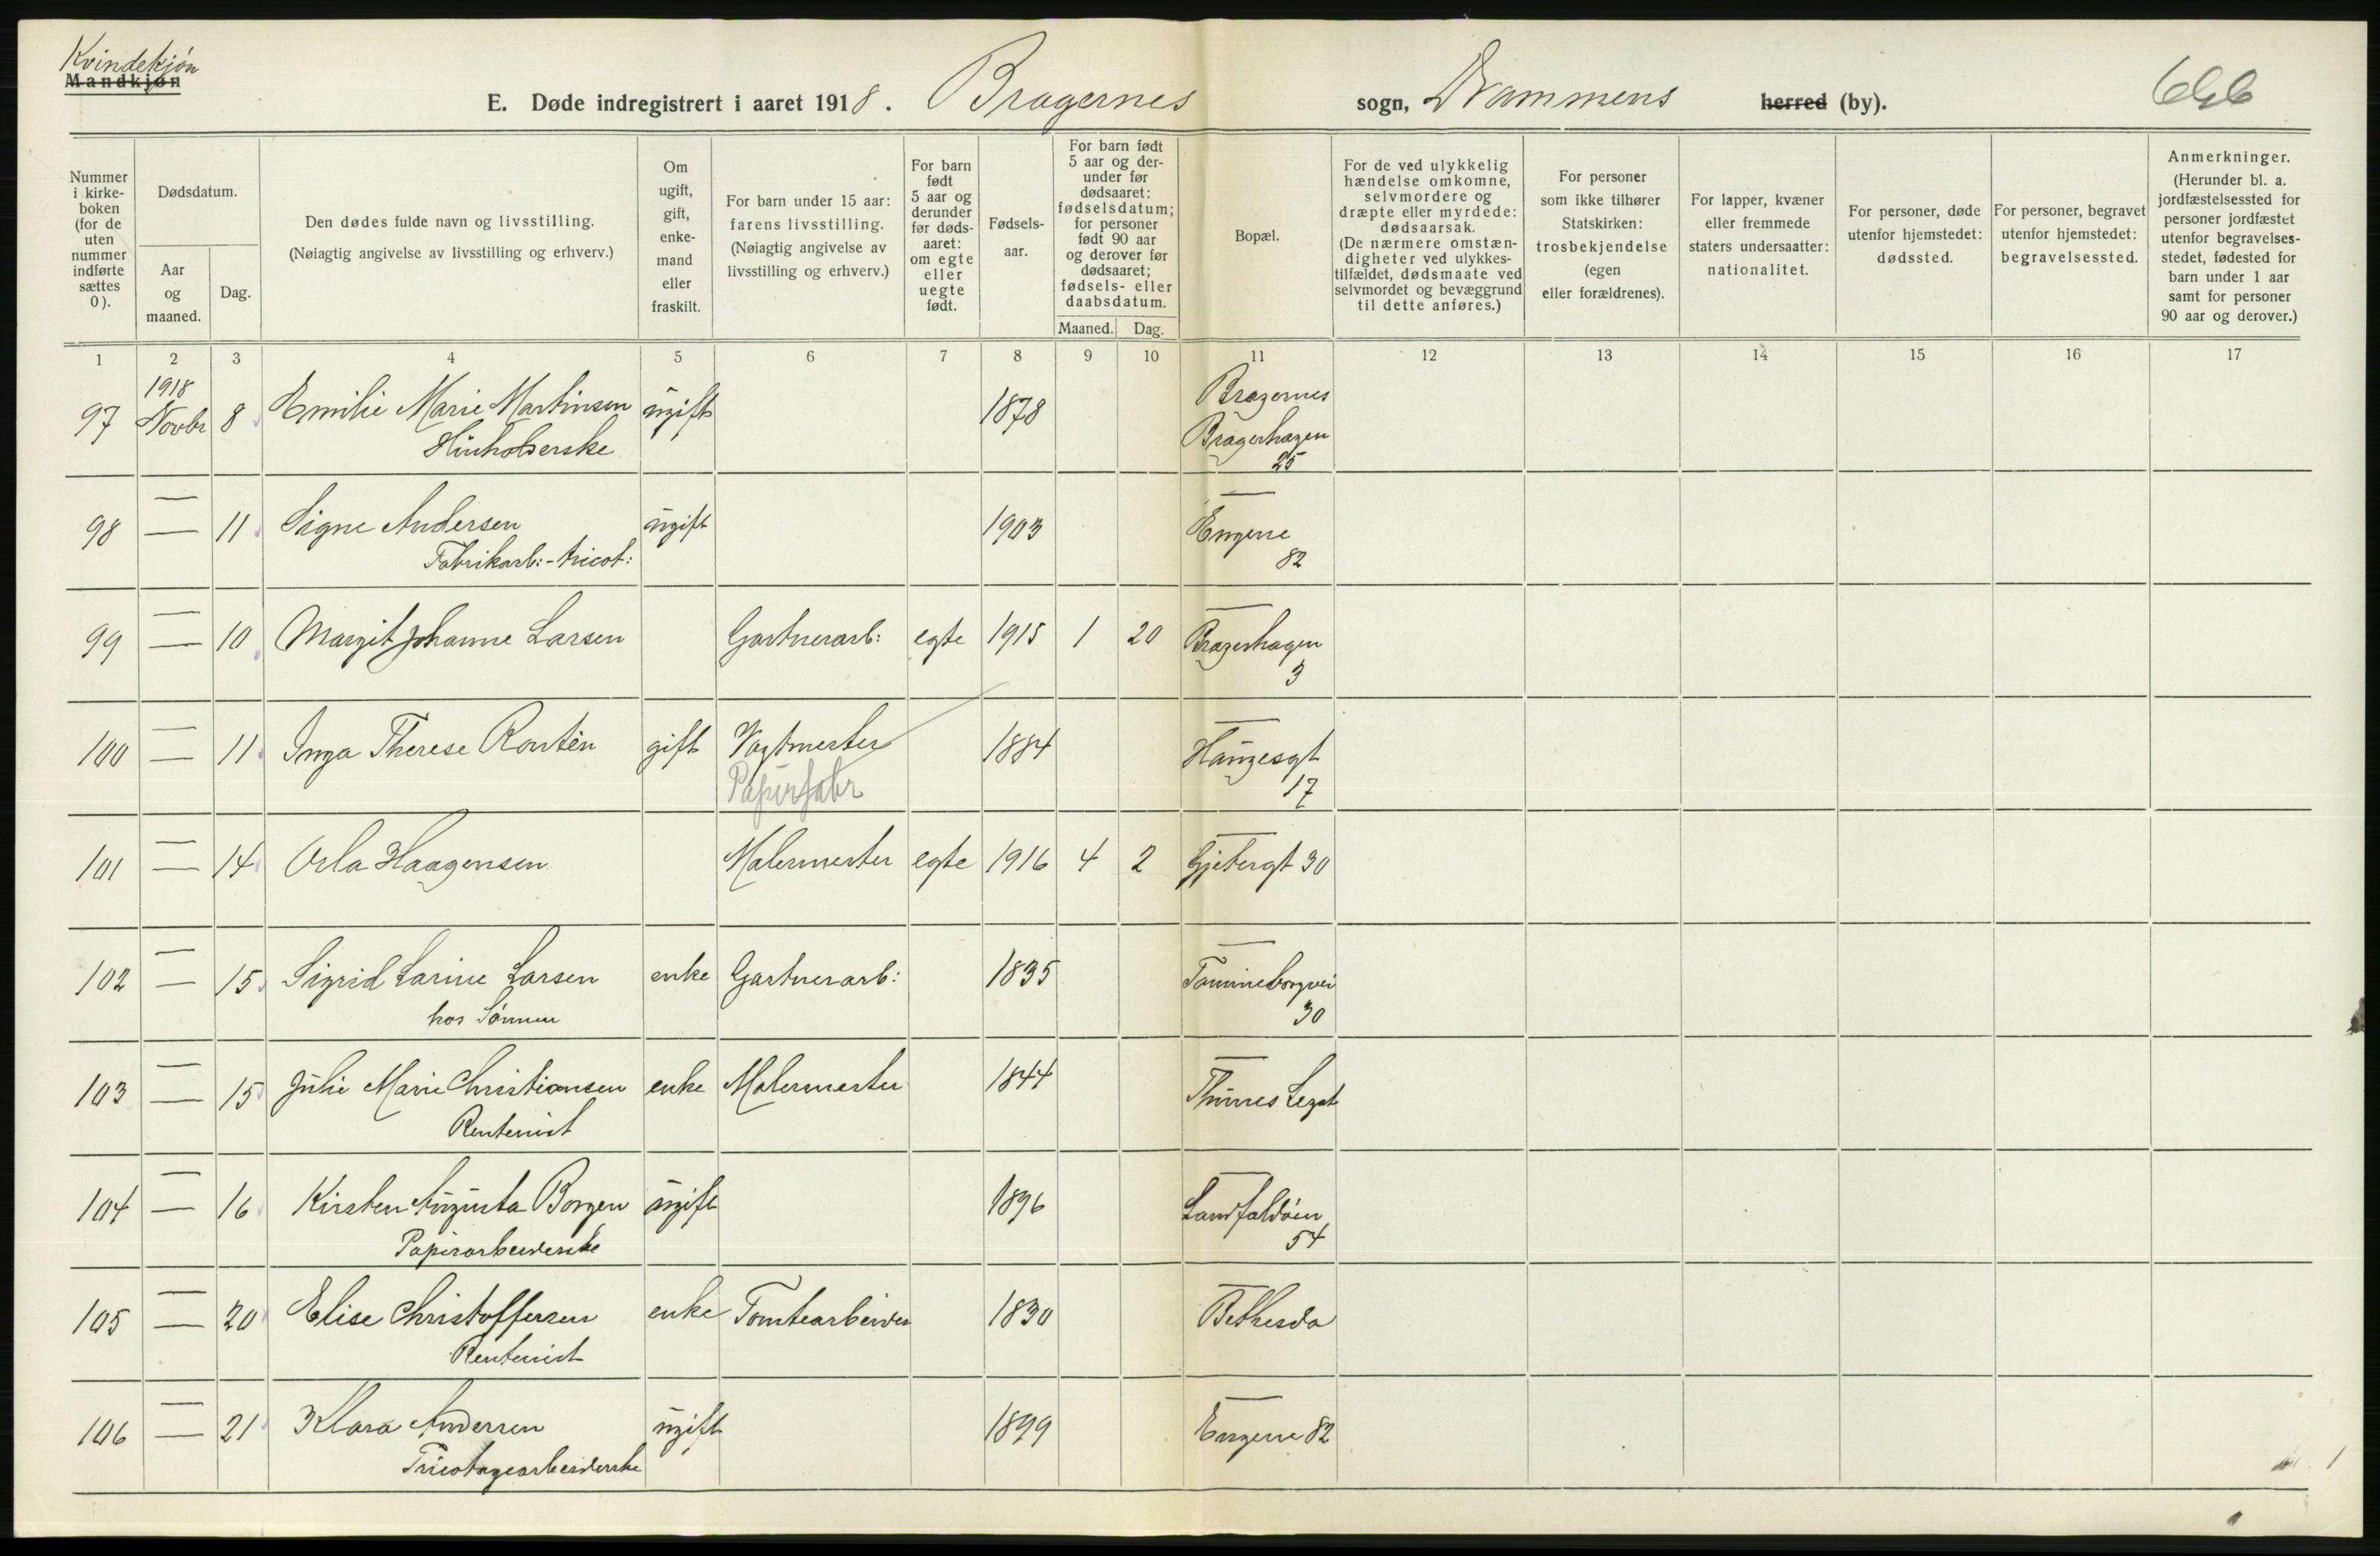 Kvindekjøn
Mandkjøn
E. Døde indregistrert i aaret 1918. Bragernes sogn, Drammens herred (by).
Nummer i kirkeboken (for de uten nummer indførte sættes 0).
Dødsdatum.
Aar og maaned.
Dag.
Den dødes fulde navn og livsstilling.
(Nøiagtig angivelse av livsstilling og erhverv.)
Om ugift, gift, enkemand eller fraskilt.
For barn under 15 aar: farens livsstilling.
(Nøiagtig angivelse av livsstilling og erhverv.)
For barn født 5 aar og derunder før dødsaaret: om egte eller uegte født.
Fødselsaar.
For barn født 5 aar og derunder før dødsaaret: fødselsdatum; for personer født 90 aar og derover før dødsaaret; fødsels- eller daabsdatum.
Maaned. Dag.
Bopæl.
For de ved ulykkelig hændelse omkomne, selvmordere og dræpte eller myrdede: dødsaarsak.
(De nærmere omstændigheter ved ulykkestilfældet, dødsmaate ved selvmordet og bevæggrund til dette anføres.)
For personer som ikke tilhører Statskirken: trosbekjendelse (egen eller forældrenes).
For lapper, kvæner eller fremmede staters undersaatter: nationalitet.
For personer, døde utenfor hjemstedet: dødssted.
For personer, begravet utenfor hjemstedet: begravelsessted.
Anmerkninger.
(Herunder bl. a. jordfæstelsessted for personer jordfæstet utenfor begravelsesstedet, fødested for barn under 1 aar samt for personer 90 aar og derover.)
1 2 3 4 5 6 7 8 9 10 11 12 13 14 15 16 17
1918 Bragernes
97 Novbr 8 Emilie Marie Martinsen ugift 1878 Bragerhagen
Husholderske 25
98 — 11 Signe Andersen ugift 1903 — Engene
Fabrikarb:-tricot: 82
99 — 10 Margit Johanne Larsen Gartnerarb: egte 1915 1 20 — Bragerhagen
3
100 — 11 Inga Therese Rontén gift Vagtmester 1884 — Haugesgt
Papirfabr 17
101 — 14 Orla Haagensen Malermester egte 1916 4 2 — Gjetergt 30
102 — 15 Sigrid Larine Larsen enke Gartnerarb: 1835 —
hos Sønnen 30
103 — 15 Julie Marie Christiansen enke Malermester 1844 — Thunes Legat
Rentenist
104 — 16 Kirsten Augusta Borgen ugift 1896 — Landfaldøen
Papirarbeiderske 54
105 — 20 Elise Christoffersen enke Tomtearbeider 1830 — Bethesda
Rentenist
106 — 21 Klara Andersen ugift 1899 — Engene 82
Tricotagearbeiderske